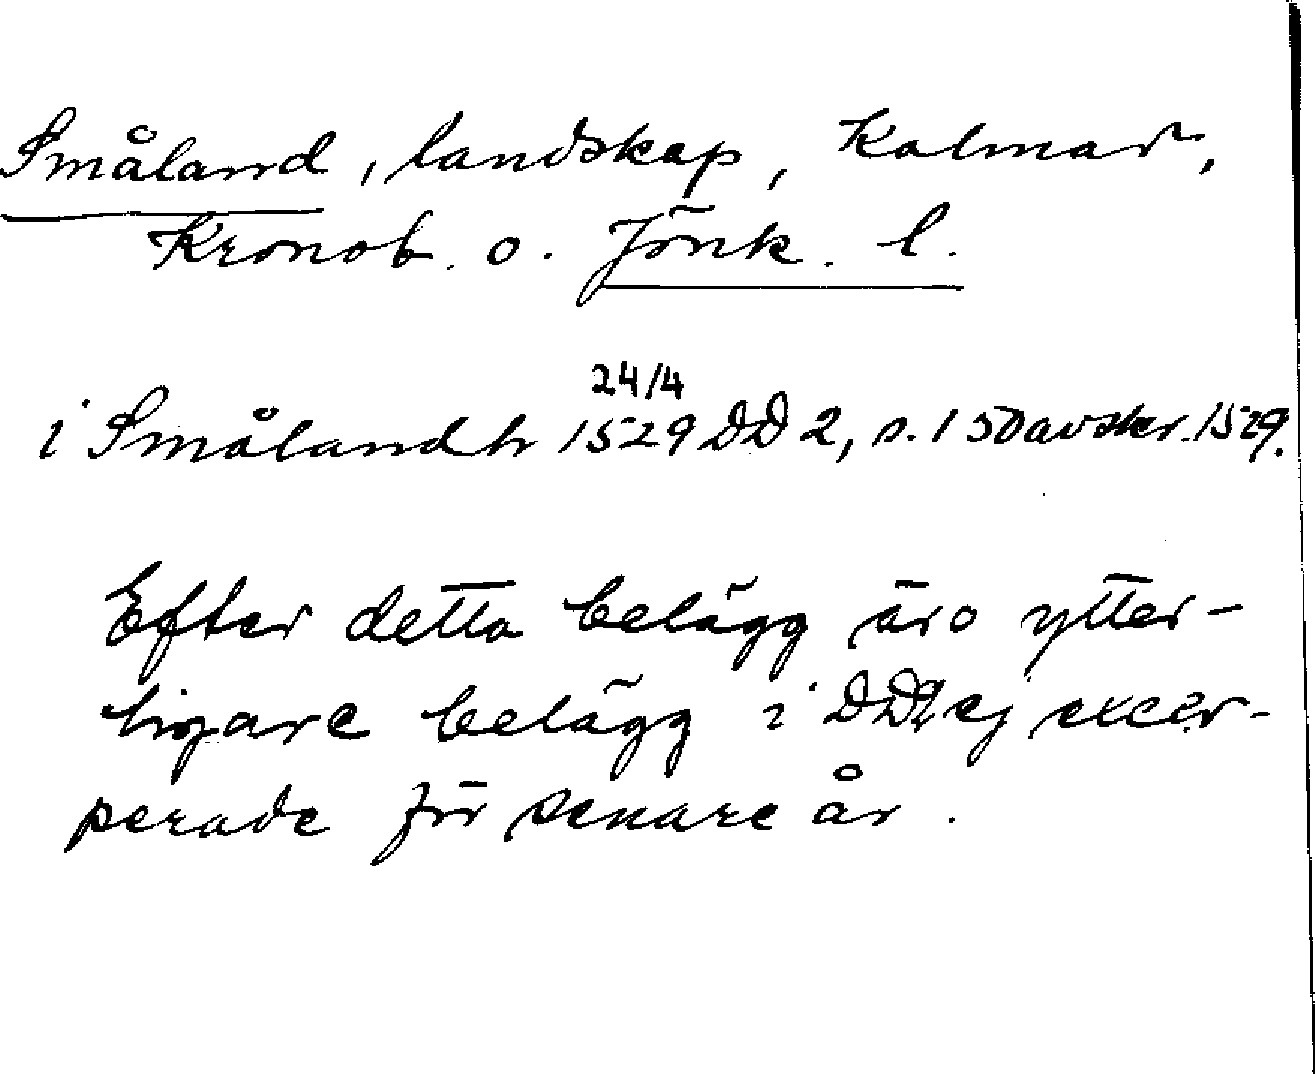 Småland, landskap, Kalmar,
Kronob. o. Jönk. l.
24/4
i Smålandh 1529 DD 2, s. 150 avskr. 1529.
Efter detta belägg äro ytter-
ligare belägg i DD2 ej excer-
perade för senare år.